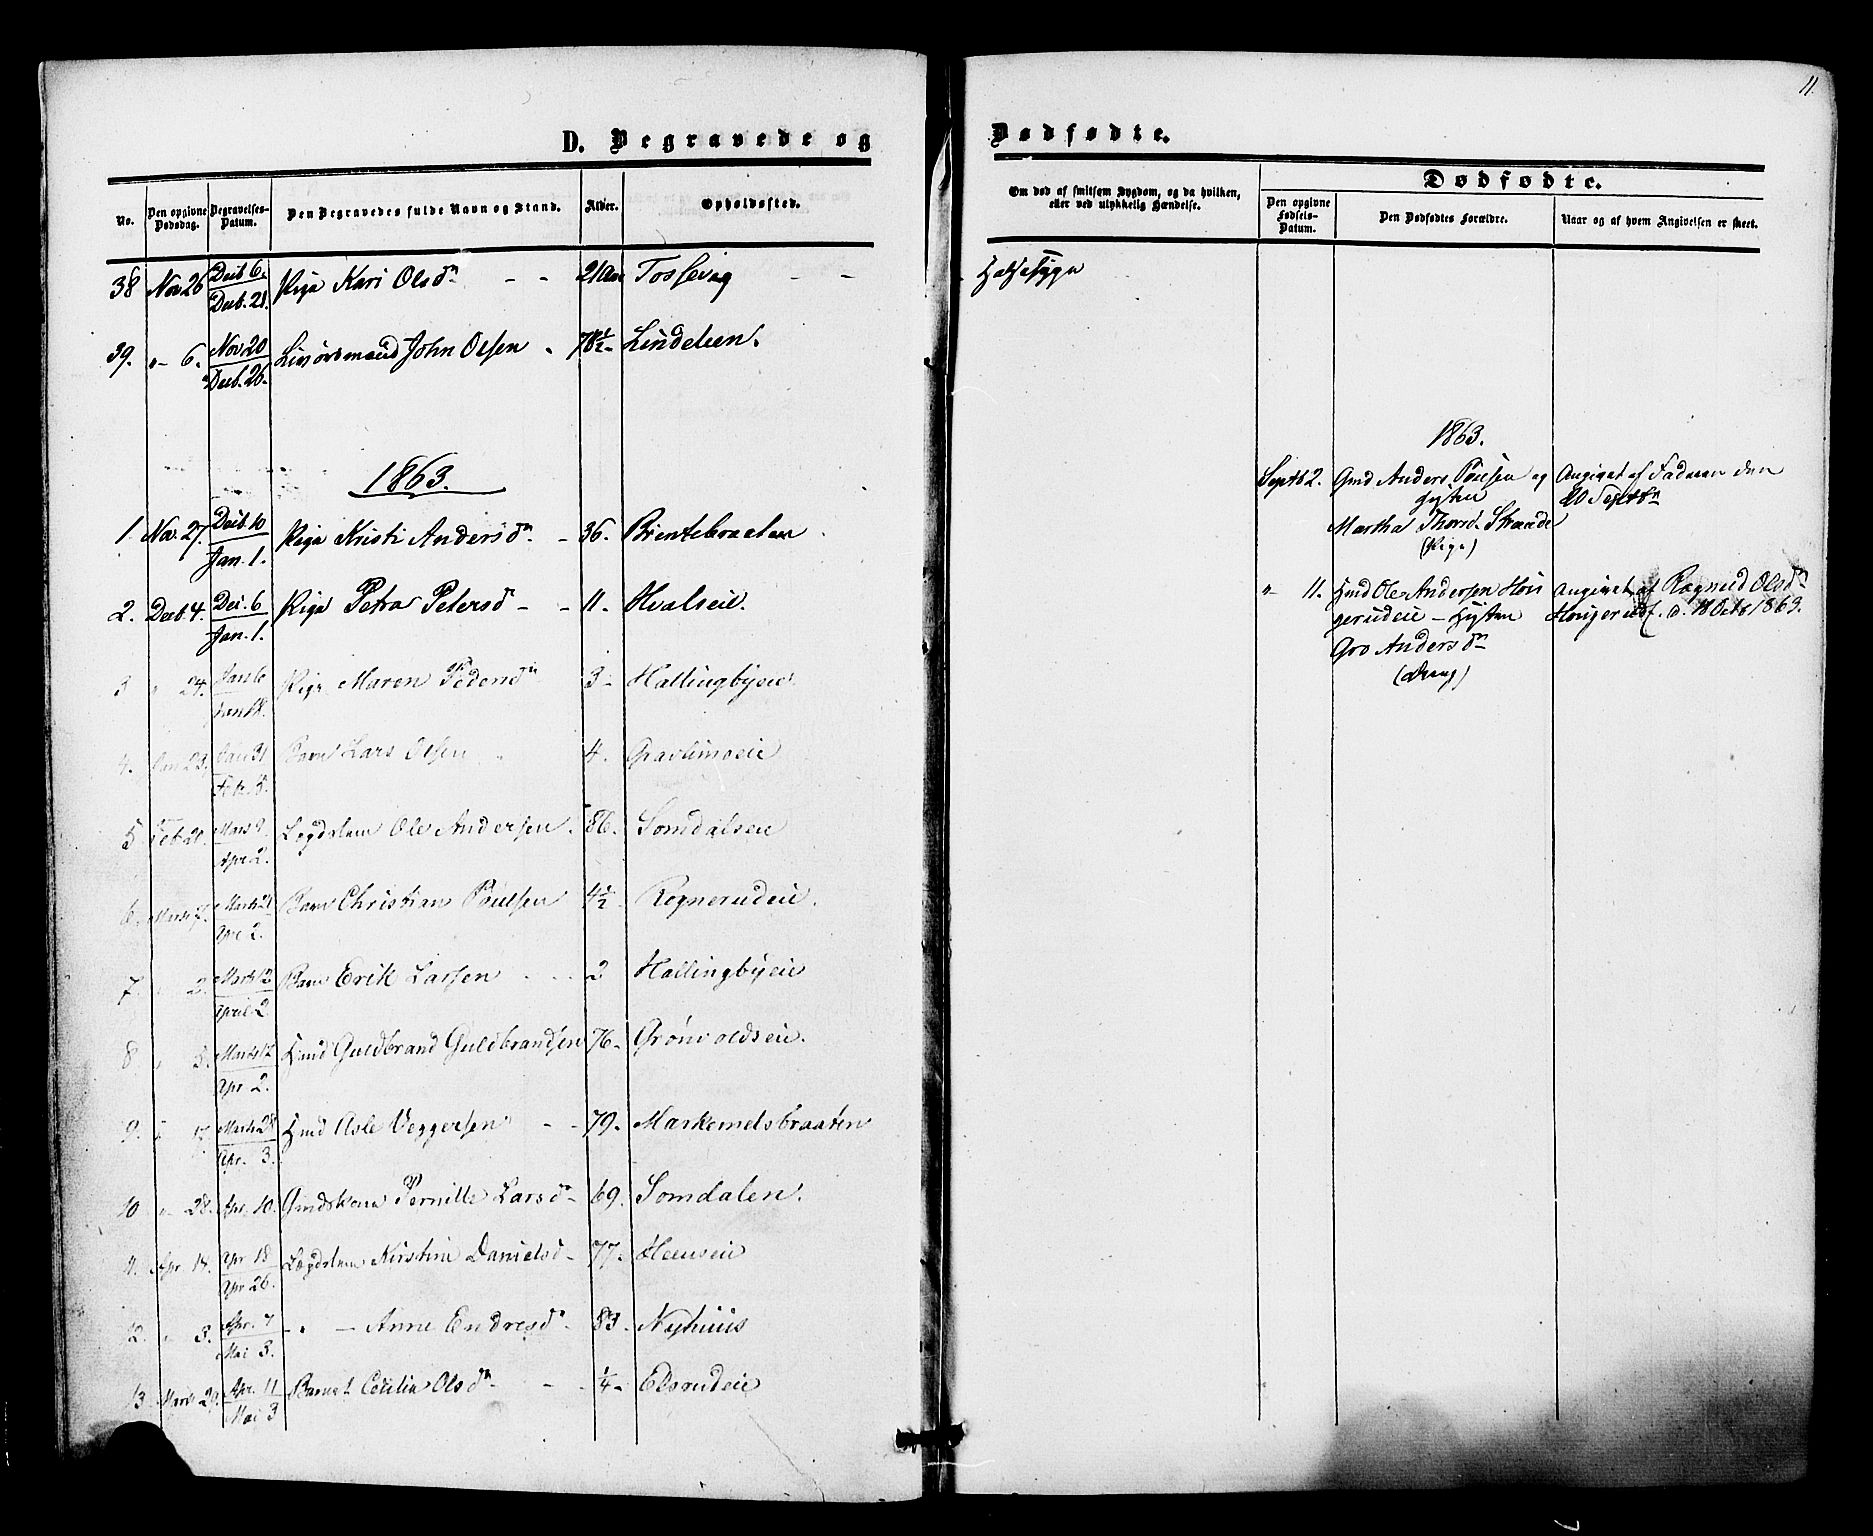 11.
D. Begravede og Dødfødte.
No. Den opgivne Dødsdag. Begravelses-Datum. Den Begravedes fulde Navn og Stand. Alder. Opholdssted.
Om død af smitsom Sygdom, og da hvilken, eller ved ulykkelig Hændelse.
Dødfødte.
Den opgivne Fødsels-Datum. Den Dødfødtes Forældre. Naar og af hvem Angivelsen er skeet.
38 Nov 26 Decb 6. Decb. 21. Pige Kari Olsdn - - 21 Aar Tossevig - - Halssyge
39. "- 6. Nov 20 Decb. 26. John Olsen 78½ - Lindelien.
1863.
1. Nov. 27. Decb. 10 Jan. 1. Pige Kristi Andersdn. - 36. Brentebraaten
2. Decb 4. Dec. 6 Jan. 1. Pige Petra Petersd - - 11. Hvalseie.
3 " 24. Jan 6 Jan 18. Pige Maren Pedersdn 3 - Hallingbyeie.
4. Jan 23. Jan 31 Feb. 8. Barn Lars Olsen 4. Gravlimoeie
5 Feb 20. Mars 9 Apr 2. Lægdslem Ole Andersen. 86. Somdalseie
6. Marts 7. Marts 21 Apr 2. Barn Christian Poulsen 4½ - Rognerudeie.
7. " 2. Marts 12 April 2. Barn Erik Larsen - - 2 Hallingbyeie
8 " 3. Marts 12 Apr 2. Kmd Guldbrand Guldbrandsen 76 - Grönvoldseie.
9. " 17. Marts 28 Apr. 3. Kmd Asle Veggersen - - 79. Markemdsbraaten
10 "- 28. Apr. 10. Gmdskone Pernille Larsdn - 69. Somdalen.
11. Apr 14. Apr 18 Apr 26. Lægdslem Kirstine Danielsd - 77. Heenseie
12. " 3. Apr. 7 Mai 3. - " - Anne Endresdn - 83 - Nyhuus
13 Marts 29. Apr. 11 Mai 3 Barnet Cecilia Olsdn - - 1/4 - Elsrudeie
1863.
Septb 2. Gmd Anders Poulsen og Angivet af Faderen den
Hustru 20 Septbr
Martha Thorsd. Straade
(Pige)
"- 11. Hmd Ole Andersen Hons Angivet af Ragnild Olsdn
gerudeie - Hustru Hongerudf. d. 18 Octb 1863.
Gro Andersdn
(Dreng)